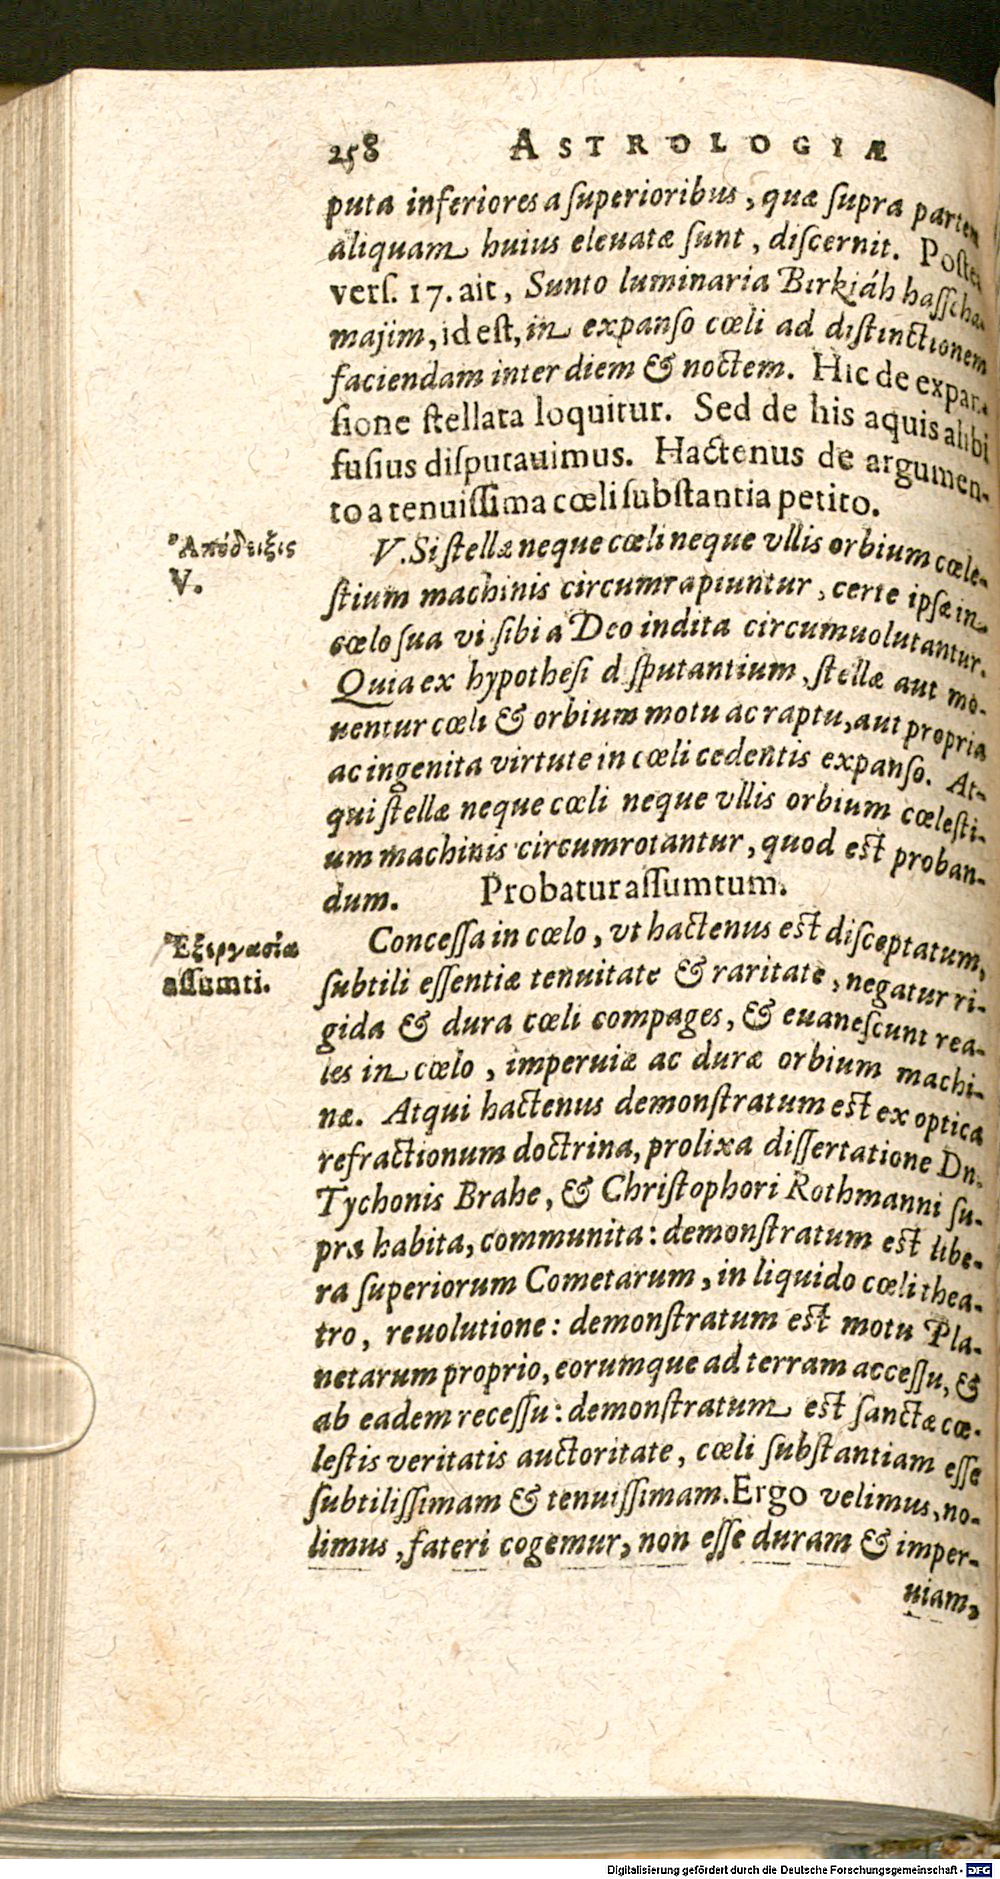 258 ASTROLOGIÆ
puta inferiores a ſuperioribus, quæ ſupra partem
aliquam huius eleuatæ ſunt, diſcernit. Poſtea
verſ. 17. ait, Sunto luminaria Birkiáh haſſcha-
majim, id eſt, in expanſo cœli ad diſtinctionem
faciendam inter diem & noctem. Hic de expan-
ſione ſtellata loquitur. Sed de his aquis alibi
fuſius diſputauimus. Hactenus de argumen-
to a tenuiſſima cœli ſubſtantia petito.
Ἀπόδειξις
V.
V. Si ſtellæ neque cœli neque vllis orbium cœle-
ſtium machinis circumrapiuntur, certe ipſæ in
cœlo ſua vi ſibi a Deo indita circumuolutantur.
Quia ex hypotheſi d ſputantium, ſtellæ aut mo-
uentur cœli & orbium motu ac raptu, aut propria
ac ingenita virtute in cœli cedentis expanſo. At-
qui ſtellæ neque cœli neque vllis orbium cœleſti-
um machinis circumrotantur, quod eſt proban-
dum. Probatur aſſumtum.
Ἐξεργασία
aſſumti.
Conceſſa in cœlo, vt hactenus eſt diſceptatum,
ſubtili eſſentiæ tenuitate & raritate, negatur ri-
gida & dura cœli compages, & euaneſcunt rea-
les in cœlo, imperuiæ ac duræ orbium machi-
næ. Atqui hactenus demonſtratum eſt ex optica
refractionum doctrina, prolixa diſſertatione Dn.
Tychonis Brahe, & Chriſtophori Rothmanni ſu-
pra habita, communita: demonſtratum eſt libe-
ra ſuperiorum Cometarum, in liquido cœli thea-
tro, reuolutione: demonſtratum eſt motu Pla-
netarum proprio, eorumque ad terram acceſſu, &
ab eadem receſſu: demonſtratum eſt ſanctæ cœ-
leſtis veritatis auctoritate, cœli ſubſtantiam eſſe
ſubtiliſſimam & tenuiſſimam. Ergo velimus, no-
limus, fateri cogemur, non eſſe duram & imper-
uiam,
Digitalisierung gefördert durch die Deutsche Forschungsgemeinschaft - DFG